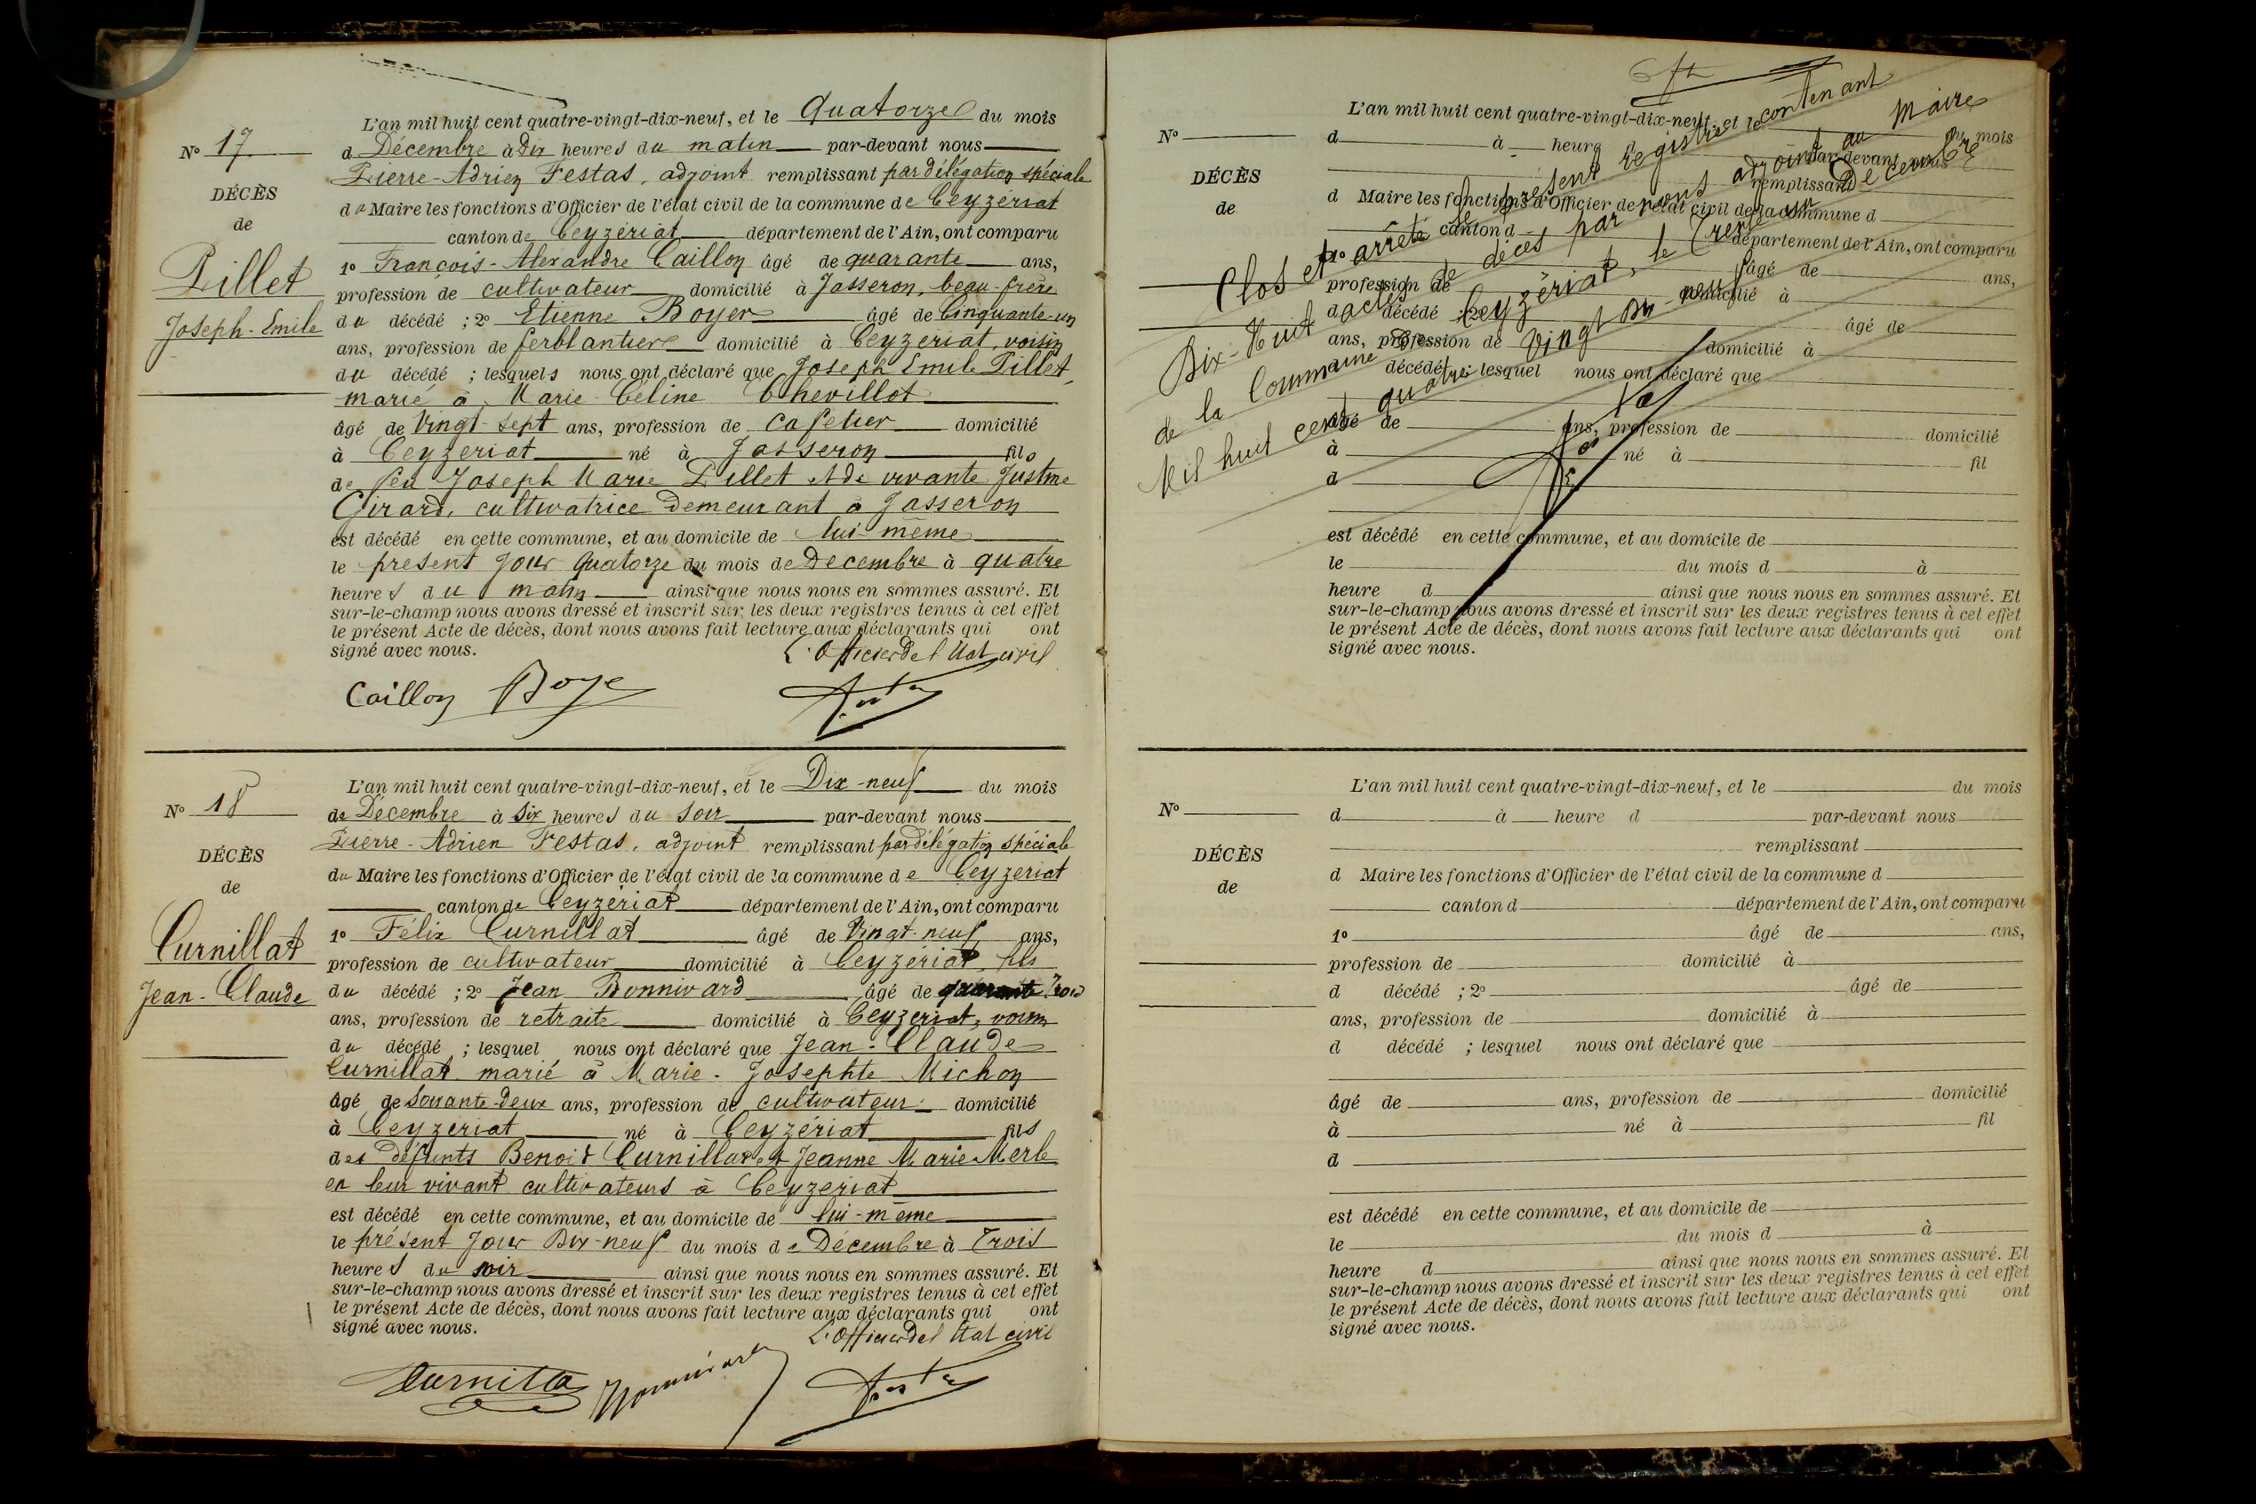 L'an mil huit cent quatre-vingt-dix-neuf, et le Quatorze du mois
d Décembre à dix heures du matin par-devant nous
Pierre-Adrien Festas, adjoint remplissant par délégation spéciale
du Maire les fonctions d'Officier de l'état civil de la commune de Ceyzériat
canton de Ceyzériat département de l'Ain, ont comparu
1º François-Alexandre Caillon âgé de quarante ans,
profession de cultivateur domicilié à Jasseron, beau-frère
du décédé ; 2º Etienne Boyer âgé de Cinquante-un
ans, profession de ferblantier domicilié à Ceyzériat, voisin
du décédé ; lesquels nous ont déclaré que Joseph Emile Pillet,
marié à Marie Céline Chevillot
âgé de Vingt-sept ans, profession de Cafetier domicilié
à Ceyzeriat né à Jasseron fils
de feu Joseph Marie Pillet & de vivante Justine
Girard, cultivatrice demeurant à Jasseron
est décédé en cette commune, et au domicile de lui-même
le présent jour quatorze du mois de Décembre à quatre
heures du matin ainsi que nous nous en sommes assuré. Et
sur-le-champ nous avons dressé et inscrit sur les deux registres tenus à cet effet
le présent Acte de décès, dont nous avons fait lecture aux déclarants qui ont
signé avec nous.
L'Officier de l'Etat civil
Caillon Boye
Nº 17
DÉCÈS
de
Pillet
Joseph-Emile
L'an mil huit cent quatre-vingt-dix-neuf, et le Dix-neuf du mois
de Décembre à six heures du soir par-devant nous
Pierre-Adrien Festas, adjoint remplissant par délégation spéciale
du Maire les fonctions d'Officier de l'état civil de la commune de Ceyzériat
canton de Ceyzériat département de l'Ain, ont comparu
1º Félix Curnillat âgé de Vingt-neuf ans,
profession de cultivateur domicilié à Ceyzériat, fils
du décédé ; 2º Jean Bonnivard âgé de quarante trois
ans, profession de retraité domicilié à Ceyzériat, voisin
du décédé ; lesquel nous ont déclaré que Jean-Claude
Curnillat marié à Marie-Josephte Michon
âgé de soixante-deux ans, profession de cultivateur domicilié
à Ceyzériat né à Ceyzériat fils
des défunts Benoit Curnillat et Jeanne Marie Merle
en leur vivant cultivateurs à Ceyzeriat
est décédé en cette commune, et au domicile de lui-même
le présent jour Dix-neuf du mois de Décembre à Trois
heures du soir ainsi que nous nous en sommes assuré. Et
sur-le-champ nous avons dressé et inscrit sur les deux registres tenus à cet effet
le présent Acte de décès, dont nous avons fait lecture aux déclarants qui ont
signé avec nous.
L'Officier de l'Etat civil
Nº 18
DÉCÈS
de
Curnillat
Jean-Claude
L'an mil huit cent quatre-vingt-dix-neuf, et le du mois
Nº
d à heure par-devant nous
DÉCÈS
remplissant
de
d Maire les fonctions d'Officier de l'état civil de la commune d
canton d département de l'Ain, ont comparu
1º âgé de ans,
profession de domicilié à
d décédé ; 2º âgé de
ans, profession de domicilié à
d décédé ; lesquel nous ont déclaré que
âgé de ans, profession de domicilié
à né à fil
d
est décédé en cette commune, et au domicile de
le du mois d à
heure d ainsi que nous nous en sommes assuré. Et
sur-le-champ nous avons dressé et inscrit sur les deux registres tenus à cet effet
le présent Acte de décès, dont nous avons fait lecture aux déclarants qui ont
signé avec nous.
Clos et arrêté le présent registre le contenant
Dix-Huit actes de décès par nous adjoint au Maire
de la Commune de Ceyzériat, le Trente un Décembre
Mil huit cent quatre Vingt Dix-neuf
L'an mil huit cent quatre-vingt-dix-neuf, et le du mois
Nº
d à heure d par-devant nous
remplissant
DÉCÈS
d Maire les fonctions d'Officier de l'état civil de la commune d
de
canton d département de l'Ain, ont comparu
1º âgé de ans,
profession de domicilié à
d décédé ; 2º âgé de
ans, profession de domicilié à
d décédé ; lesquel nous ont déclaré que
âgé de ans, profession de domicilié
à né à fil
d
est décédé en cette commune, et au domicile de
le du mois d à
heure d ainsi que nous nous en sommes assuré. Et
sur-le-champ nous avons dressé et inscrit sur les deux registres tenus à cet effet
le présent Acte de décès, dont nous avons fait lecture aux déclarants qui ont
signé avec nous.